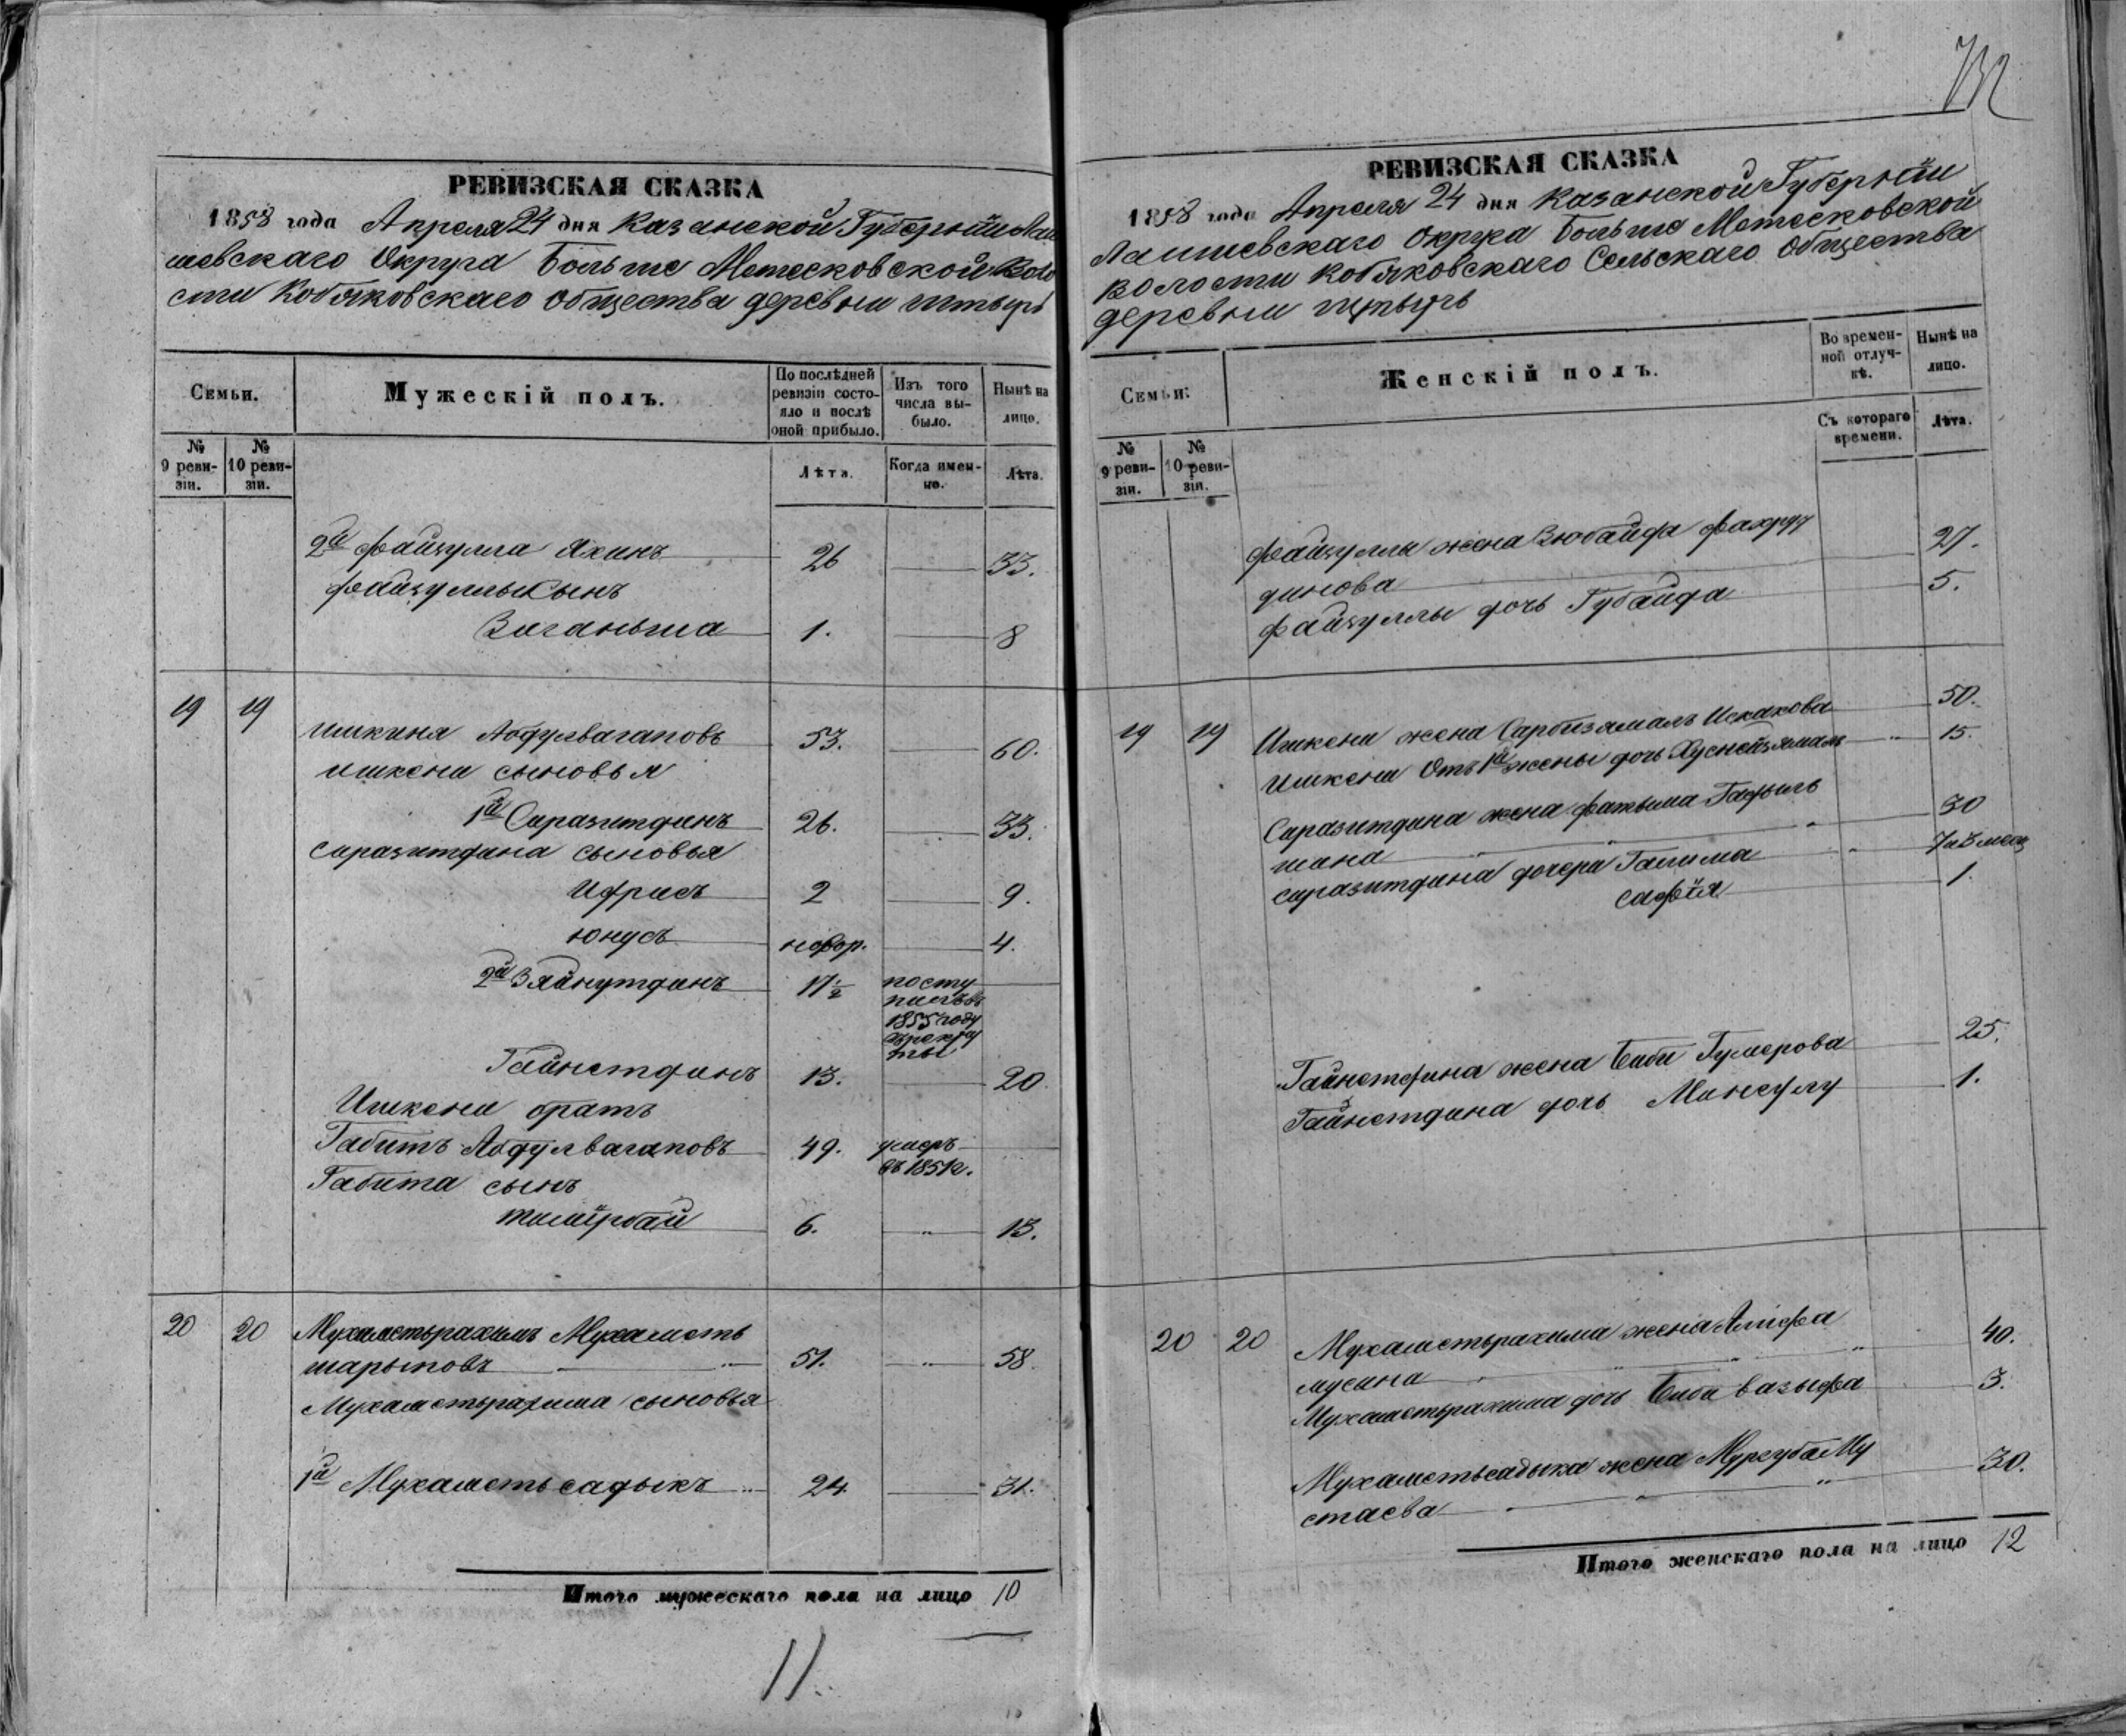 РЕВИЗСКАЯ СКАЗКА
1858 года Апреля 24 дня Казанской Губернiи Лаи
шевскаго Округа Больше Метесковской Воло
сти Кобяковскаго Общества деревни Штырь
Семьи.
Мужескiй полъ.
По послѣдней ревизiи состояло и послѣ оной прибыло.
Изъ того числа выбыло.
Нынѣ на лицо.
№ 9 ревизiи.
№ 10 ревизiи.
Лѣта.
Когда именно.
Лѣта.
2й Файзулла Яхинъ 26 33.
Файзуллы Сынъ
Виганьша 1. 8
19 19 Ишкиня Абдулвагаповъ 53. 60.
Ишкени сыновья
1й Сиразитдинъ 26. 33.
Сиразитдина сыновья
Идрисъ 2 9.
Юнусъ новор. 4.
2й Зяйнутдинъ 17 1/2 посту
пилъ въ
1855 году
въ рекру
ты
Гайнетдинъ 13. 20
Ишкени братъ
Габитъ Абдулвагаповъ 49. умеръ
въ 1851 г.
Габита сынъ
тимїрбай 6. 13.
20 20 Мухаметьрахимъ Мухаметь
шарыповъ 51. 58.
Мухаметьрахима сыновья
1й Мухаметьсадыкъ 24. 31.
Итого мужескаго пола на лицо 10
11.
РЕВИЗСКАЯ СКАЗКА
1858 года Апреля 24 дня Казанской Губернiи
Лаишевскаго Округа Больше Метесковской
Волости Кобяковскаго Сельскаго Общества
деревни
Семьи.
Женскiй полъ.
Во временной отлучкѣ.
Нынѣ на лицо.
№ 9 ревизiи.
№ 10 ревизiи.
Съ котораго времени.
Лѣта.
Файзуллы жена Зюбайда Фахрут
динова 27.
Файзуллы дочь Губайда 5.
19 19 Ишкени жена Сарбизямалъ Искакова 50.
Ишкени Отъ 1й жены дочь Хуснейзямалъ 15.
Сиразитдина жена Фатыма Гадыль
шина 30
Сиразитдина дочери Галима 7 и 3 мец
Сафiя 1.
Гайнетдина жена Биби Гумерова 25.
Гайнетдина дочь Минсулу 1.
20 20 Мухаметьрахима жена
мусина 40.
Мухаметьрахима дочь Биби вазыфа 3.
Мухаметьсадыка жена Мургуба Му
стаева 30.
Итого женскаго пола на лицо 12